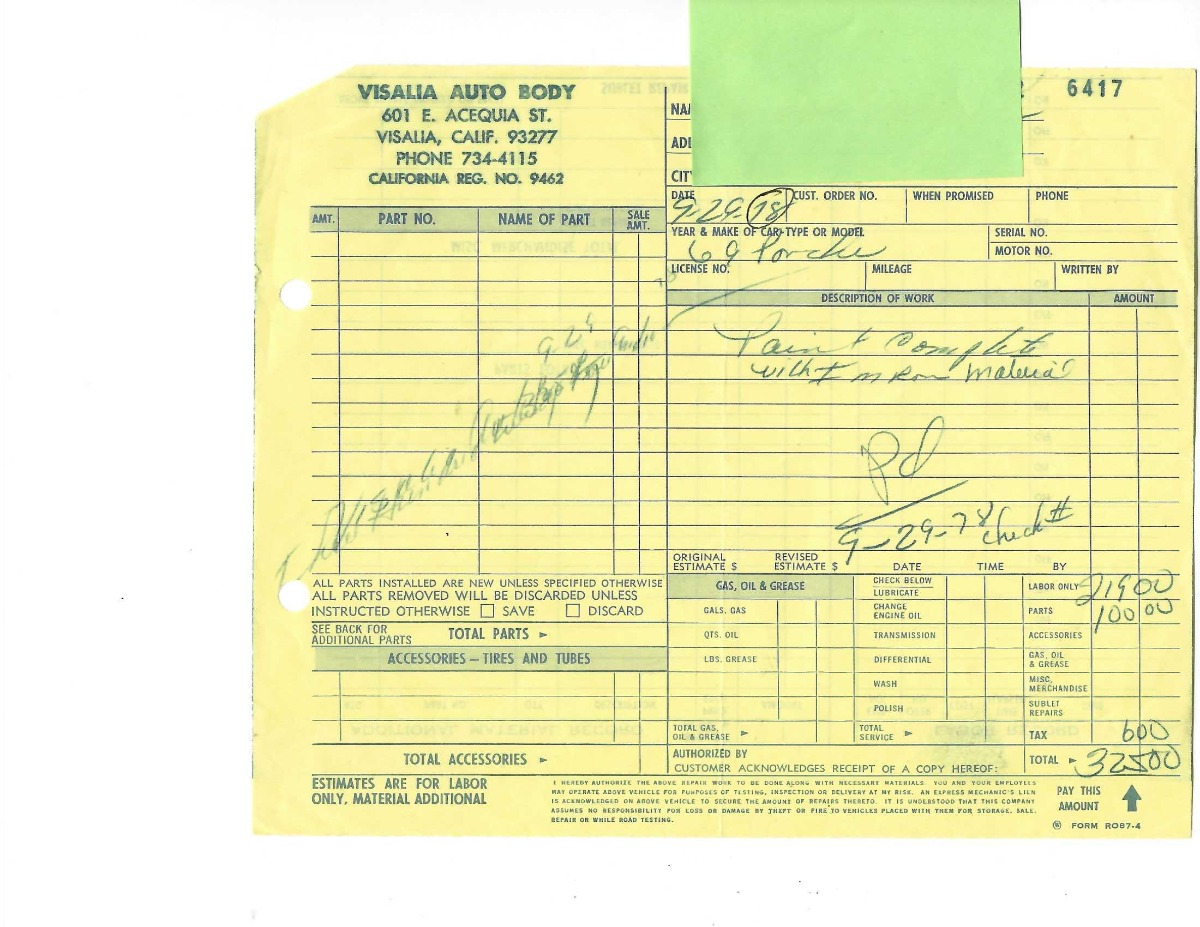 VISALIA AUTO BODY
601 E. ACEQUIA ST.
VISALIA, CALIF. 93277
PHONE 734-4115
CALIFORNIA REG. NO. 9462
6417
NA
ADD
CITY
DATE CUST. ORDER NO. WHEN PROMISED PHONE
9-29-78
YEAR & MAKE OF CAR-TYPE OR MODEL SERIAL NO.
69 Porche MOTOR NO.
LICENSE NO. MILEAGE WRITTEN BY
AMT. PART NO. NAME OF PART SALE AMT.
DESCRIPTION OF WORK AMOUNT
Paint Complete
with Imron Material
Pd
9-29-78 Check #
ORIGINAL ESTIMATE $ REVISED ESTIMATE $ DATE TIME BY
ALL PARTS INSTALLED ARE NEW UNLESS SPECIFIED OTHERWISE
ALL PARTS REMOVED WILL BE DISCARDED UNLESS
INSTRUCTED OTHERWISE ☐ SAVE ☐ DISCARD
SEE BACK FOR ADDITIONAL PARTS TOTAL PARTS ►
ACCESSORIES — TIRES AND TUBES
TOTAL ACCESSORIES ►
GAS, OIL & GREASE CHECK BELOW LABOR ONLY 21900
LUBRICATE
GALS. GAS CHANGE ENGINE OIL PARTS 100 00
QTS. OIL TRANSMISSION ACCESSORIES
LBS. GREASE DIFFERENTIAL GAS, OIL & GREASE
WASH MISC. MERCHANDISE
POLISH SUBLET REPAIRS
TOTAL GAS, OIL & GREASE ► TOTAL SERVICE ► TAX 600
AUTHORIZED BY TOTAL ► 32500
CUSTOMER ACKNOWLEDGES RECEIPT OF A COPY HEREOF:
ESTIMATES ARE FOR LABOR
ONLY, MATERIAL ADDITIONAL
I HEREBY AUTHORIZE THE ABOVE REPAIR WORK TO BE DONE ALONG WITH NECESSARY MATERIALS. YOU AND YOUR EMPLOYEES
MAY OPERATE ABOVE VEHICLE FOR PURPOSES OF TESTING, INSPECTION OR DELIVERY AT MY RISK. AN EXPRESS MECHANIC'S LIEN
IS ACKNOWLEDGED ON ABOVE VEHICLE TO SECURE THE AMOUNT OF REPAIRS THERETO. IT IS UNDERSTOOD THAT THIS COMPANY
ASSUMES NO RESPONSIBILITY FOR LOSS OR DAMAGE BY THEFT OR FIRE TO VEHICLES PLACED WITH THEM FOR STORAGE, SALE,
REPAIR OR WHILE ROAD TESTING.
PAY THIS AMOUNT
FORM RO87-4